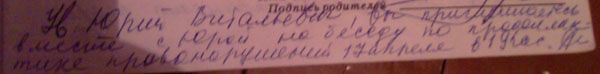 Подпись родителей
Ув. Юрий Витальевич, вы приглашаетесь
вместе с Юрой на беседу по профилак-
тике правонарушений 17 апреля в 17 час.